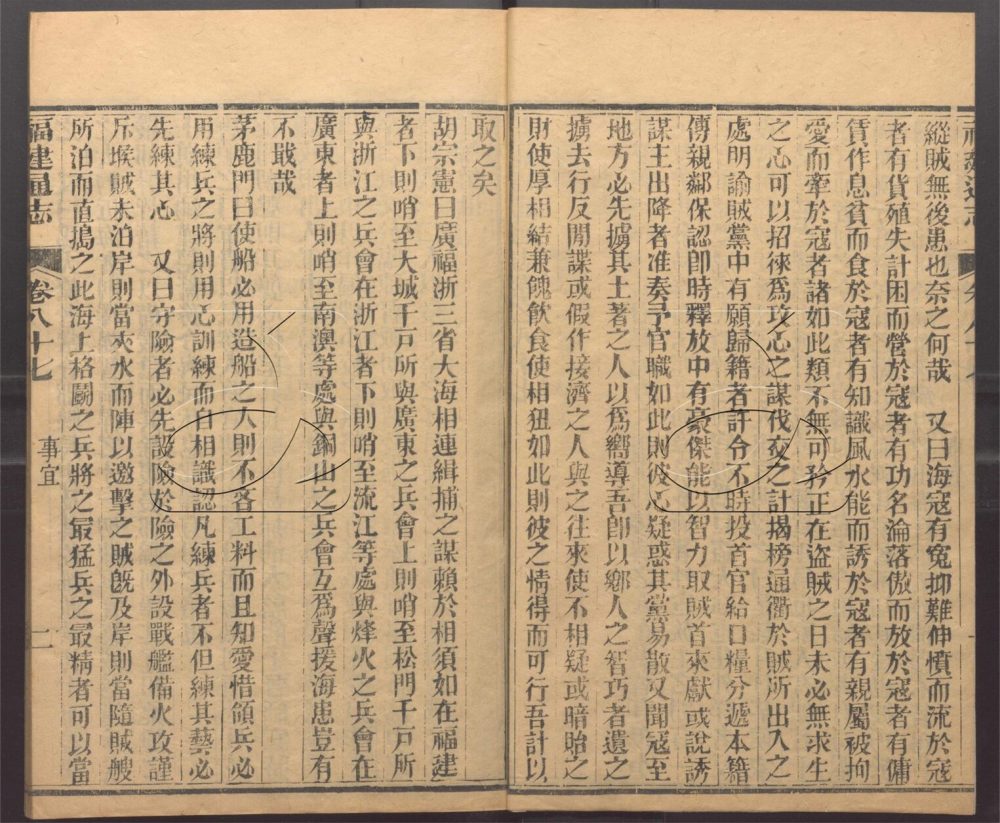 縱賊無後患也奈之何哉　又曰海寇有冤抑難伸憤而流於寇
者有貨殖失計困而營於寇者有功名淪落傲而放於寇者有傭
賃作息貧而食於寇者有知識風水能而誘於寇者有親屬被拘
愛而牽於寇者諸如此類不無可矜正在盜賊之日未必無求生
之心可以招徠爲攻心之謀伐交之計揭榜通衢於賊所出入之
處明諭賊黨中有願歸籍者許令不時投首官給口糧分遞本籍
傳親鄰保認卽時釋放中有豪傑能以智力取賊首來獻或說誘
謀主出降者准奏予官職如此則彼心疑惑其黨易散又聞寇至
地方必先擄其土著之人以爲嚮導吾卽以鄉人之智巧者遺之
擄去行反間諜或假作接濟之人與之往來使不相疑或暗貽之
財使厚相結兼餽飲食使相狃如此則彼之情得而可行吾計以
取之矣
胡宗憲曰廣福浙三省大海相連緝捕之謀賴於相須如在福建
者下則哨至大城千戸所與廣東之兵會上則哨至松門千戸所
與浙江之兵會在浙江者下則哨至流江等處與烽火之兵會在
廣東者上則哨至南澳等處與銅山之兵會互爲聲援海患豈有
不戢哉
茅鹿門曰使船必用造船之人則不吝工料而且知愛惜領兵必
用練兵之將則用心訓練而自相識認凡練兵者不但練其藝必
先練其心　又曰守險者必先設險於險之外設戰艦備火攻謹
斥堠賊未泊岸則當夾水而陣以邀擊之賊旣及岸則當隨賊艘
所泊而直搗之此海上格鬭之兵將之最猛兵之最精者可以當
福建通志
卷八十七
事宜
二